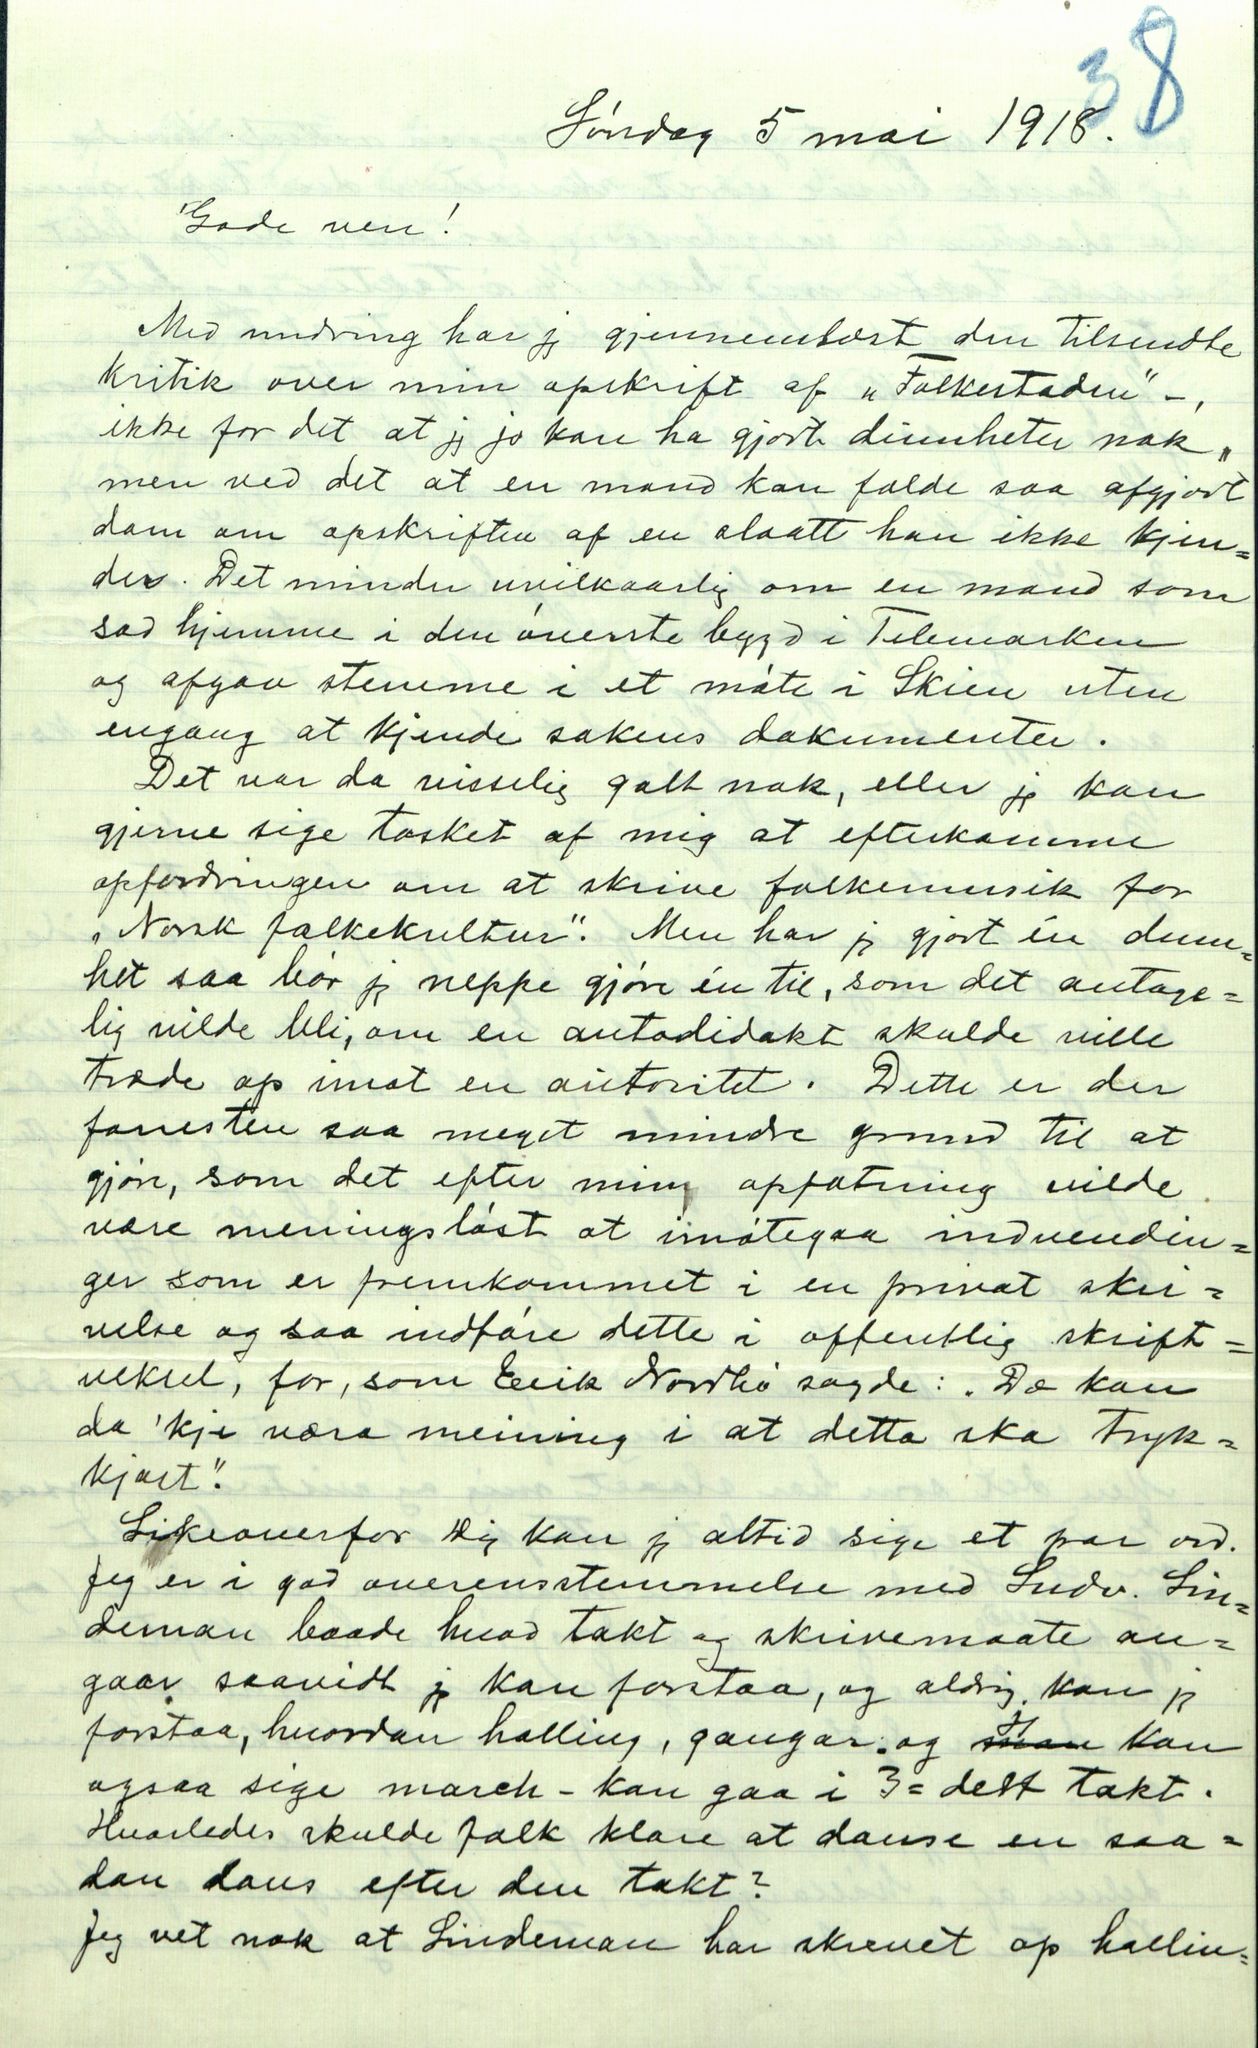 38
Söndag 5 mai 1918.
Gode ven!
Med undring har jeg gjennemlæst den tilsendte
kritik over min opskrift af „Folkestaden" -,
ikke for det at jeg jo kan ha gjort dumheter nok,
men ved det at en mand kan fælde saa afgjort
dom om opskriften af en slaatt han ikke kjen=
der. Det minder uvilkaarlig om en mand som
sad hjemme i den överste bygd i Telemarken
og afgav stemme i et möte i Skien uten
engang at kjende sakens dokumenter.
Det var da visselig galt nok, eller jeg kan
gjerne sige tosket af mig at efterkomme
opfordringen om at skrive folkemusik for
„Norsk folkekultur". Men har jeg gjort én dum=
het saa bör jeg neppe gjöre én til, som det antage=
lig vilde bli, om en autodidakt skulde ville
træde op imot en autoritet. Dette er der
forresten saa meget mindre grund til at
gjöre, som det efter min opfatning vilde
være meningslöst at imötegaa indvendin=
ger som er fremkommet i en privat skri=
velse og saa indföre dette i offentlig skrift=
veksel, for, som Eirik Nordbö sagde: „Dæ kan
da 'kje væra meining i at detta ska tryk=
kjast".
Likeoverfor dig kan jeg altid sige et par ord.
Jeg er i god overensstemmelse med Ludv. Lin=
deman baade hvad takt og skrivemaate an=
gaar saavidt jeg kan forstaa, og aldrig kan jeg
forstaa, hvordan halling, gangar og kan
ogsaa sige march - kan gaa i 3=delt takt.
Hvorledes skulde folk klare at danse en saa=
dan dans efter den takt?
Jeg vet nok at Lindeman har skrevet op hallin=